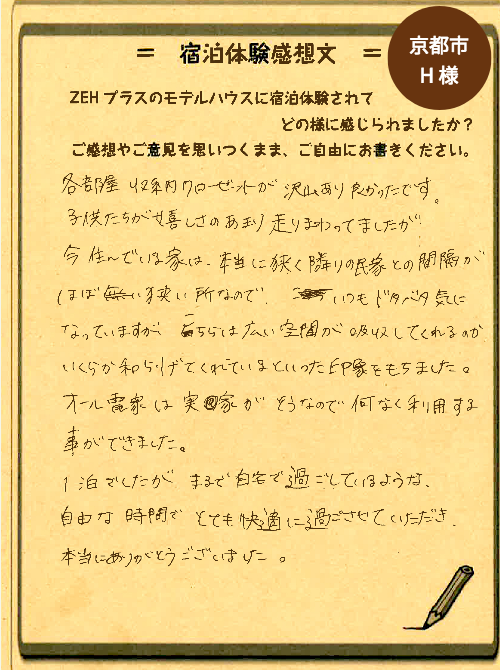 = 宿泊体験感想文 =
京都市
H 様
ZEH プラスのモデルハウスに宿泊体験されて
どの様に感じられましたか?
ご感想やご意見を思いつくまま、ご自由にお書きください。
各部屋 収納クローゼットが 沢山あり 良かったです。
子供たちが嬉しさのあまり 走りまわってましたが
今 住んでいる家は、本当に狭く 隣りの民家との間隔が
ほぼ 無い狭い所なので、 いつもドタバタ気に
なっていますが、こちらは広い空間が 吸収してくれるのか
いくらか和らげてくれているといった印象をもちました。
オール電家は 実家が そうなので 何なく利用する
事ができました。
1泊でしたが まるで自宅で過ごしているような、
自由な 時間で とても快適に過ごさせていただき、
本当にありがとうございました。